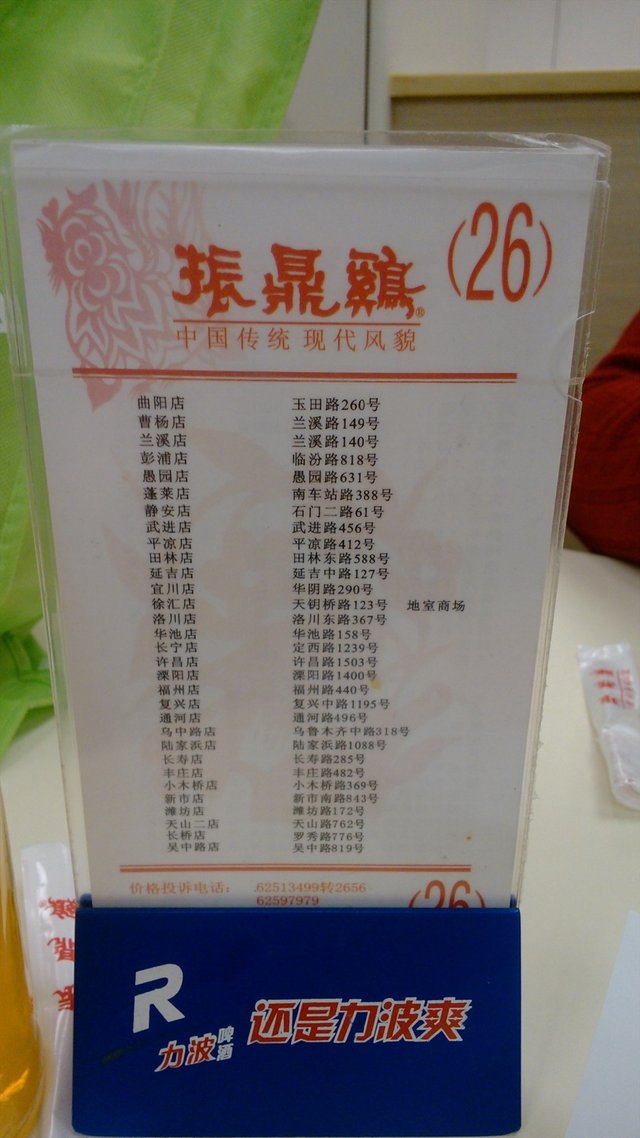 (26)
振鼎鷄®
中国传统 现代风貌
曲阳店 玉田路260号
曹杨店 兰溪路149号
兰溪店 兰溪路140号
彭浦店 临汾路818号
愚园店 愚园路631号
蓬莱店 南车站路388号
静安店 石门二路61号
武进店 武进路456号
平凉店 平凉路412号
田林店 田林东路588号
延吉店 延吉中路127号
宜川店 华阴路290号
徐汇店 天钥桥路123号 地室商场
洛川店 洛川东路367号
华池店 华池路158号
长宁店 定西路1239号
许昌店 许昌路1503号
溧阳店 溧阳路1400号
福州店 福州路440号
复兴店 复兴中路1195号
通河店 通河路496号
乌中路店 乌鲁木齐中路318号
陆家浜店 陆家浜路1088号
长寿店 长寿路285号
丰庄店 丰庄路482号
小木桥店 小木桥路369号
新市店 新市南路843号
潍坊店 潍坊路172号
天山二店 天山路762号
长桥店 罗秀路776号
吴中路店 吴中路819号
价格投诉电话: .62513499转2656
62597979
(26
R
力波啤酒
还是力波爽
振鼎鷄